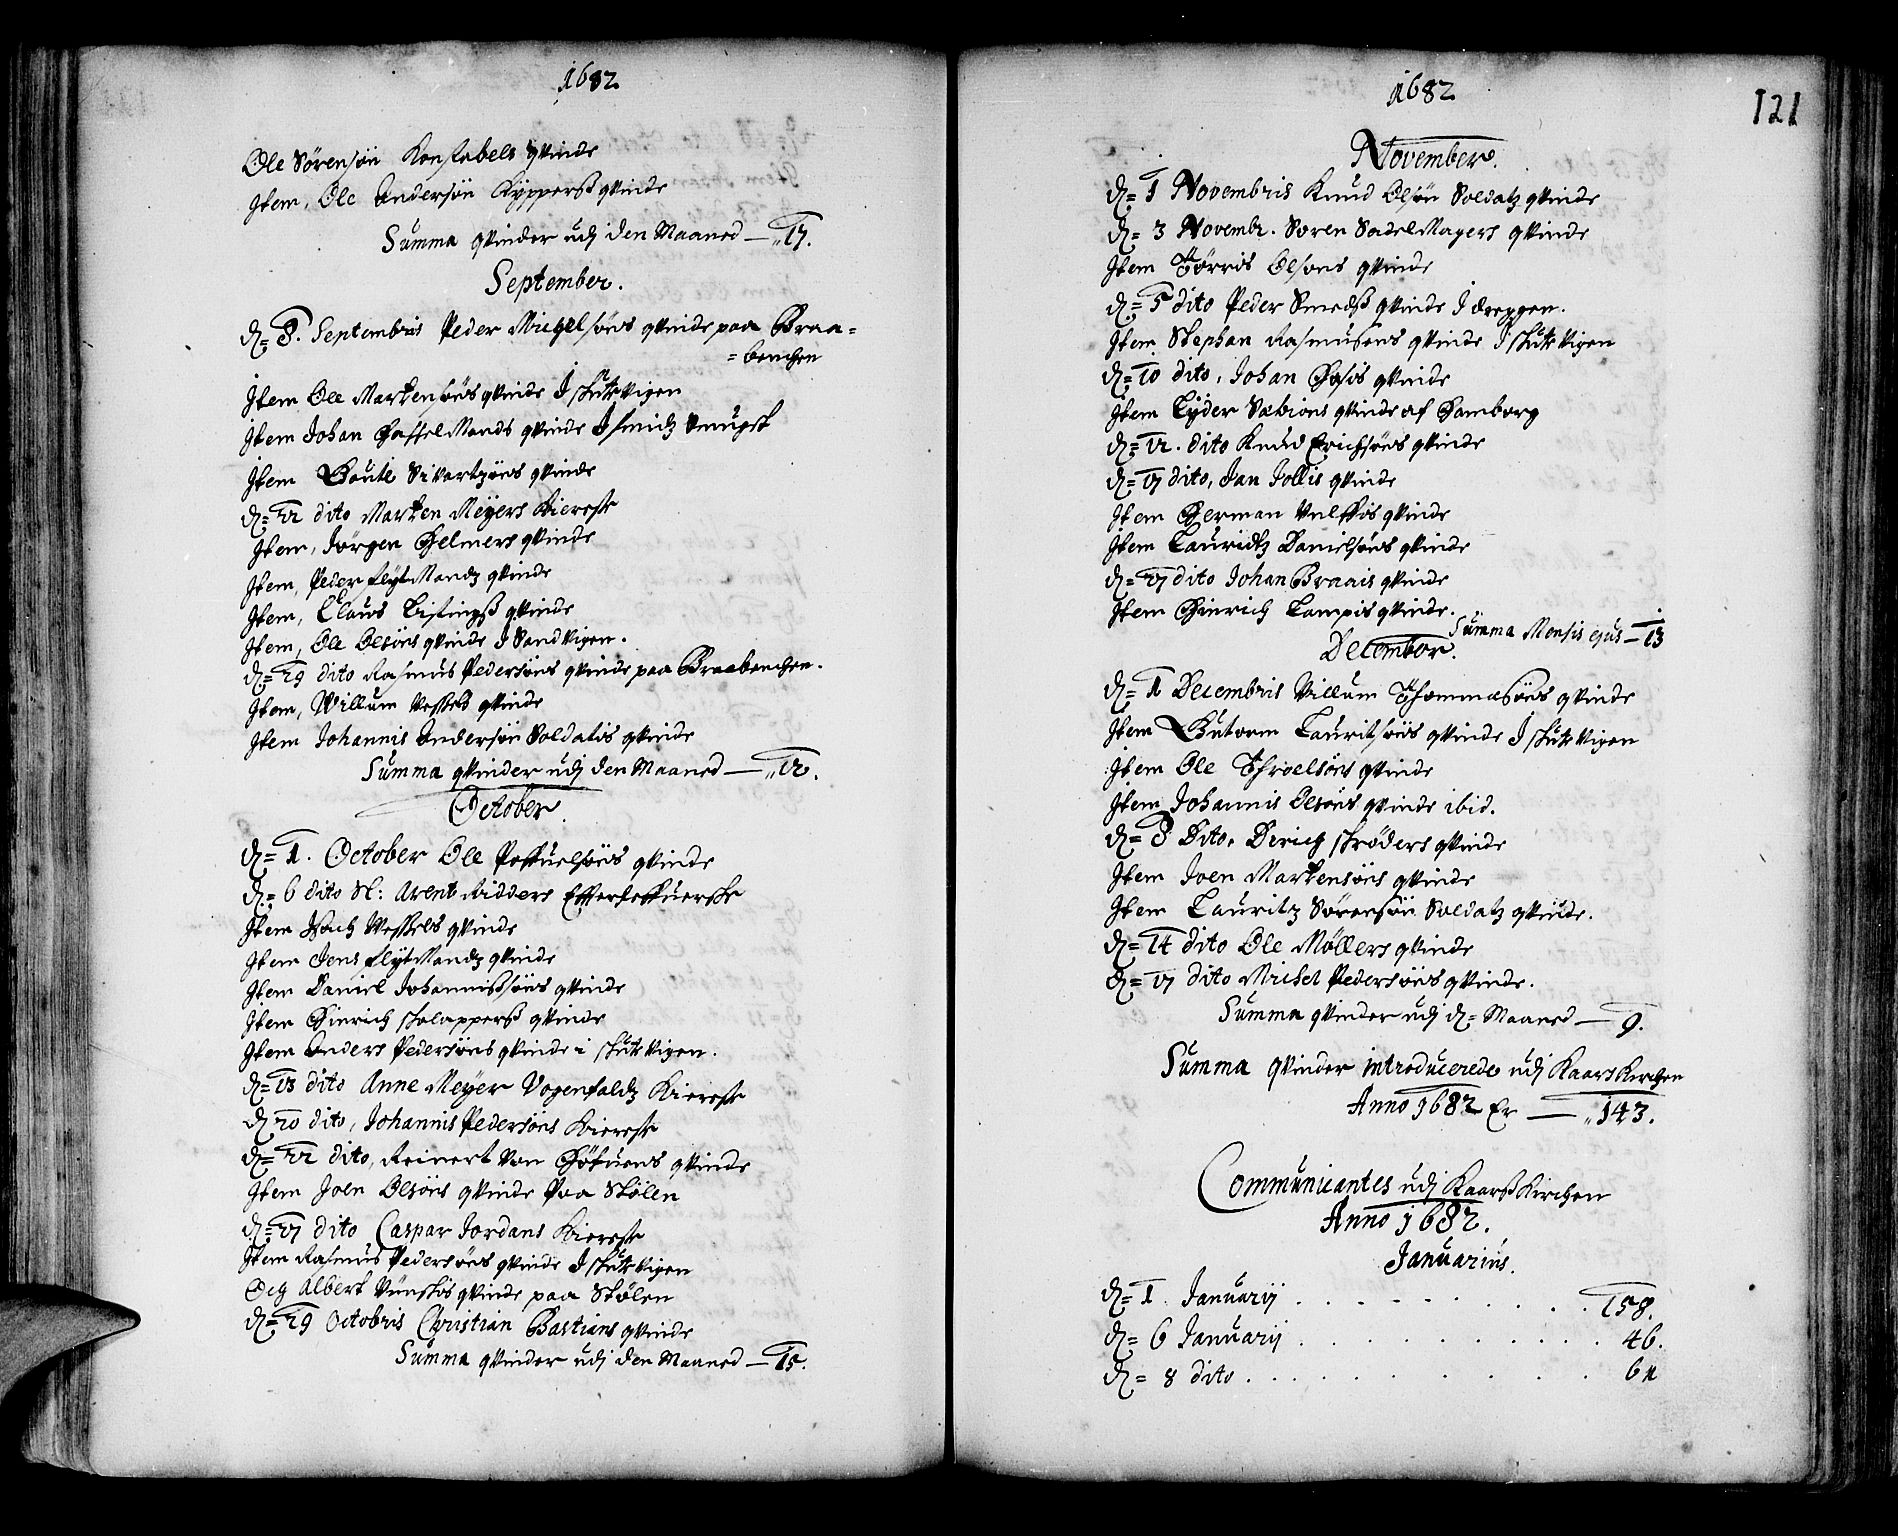 1682
Ole Sörensön Konstabels qvinde
Item, Ole Andersön Kyppersß qvinde
Summa qvinder udj den Maaned — 17.
September.
D= 8. Septembris Peder Michelsöns qvinde paa Braa=
=benchen
Item Ole Martensöns qvinde I skutevigen
Item Johan Hasselmands qvinde I smidz Smugst
Item Goutil Sivartzöns qvinde
D= 12 dito Marten Meyers Kiereste
Item, Jörgen Helmers qvinde
Item, Peder flytMandz qvinde
Item, Claus Listingß qvinde
Item, Ole Olsöns qvinde I Sandvigen.
D= 29 dito Rasmus Pedersöns qvinde paa Braabenchen.
Item, Willum Vessels qvinde
Item Johannis Andersön Soldatis qvinde
Summa qvinder udj den Maaned — 12.
October.
D= 1. October Ole Poffuelsöns qvinde
D= 6 dito Sl: Arent Ridders Efterleffuerske
Item Wessels qvinde
Item Jens flytMandz qvinde
Item Daniel Johannißöns qvinde
Item Hinrich sklapperß qvinde
Item Anders Pedersöns qvinde i skutevigen.
D= 13 dito Anne Meyer Vogenfaldz Kiereste
D= 20 dito, Johannis Pedersöns Kiereste
D= 22 dito, Reinert Von Höfuens qvinde
Item Joen Olsöns qvinde Paa Stölen
D= 27 dito Caspar Jordans Kiereste
Item Rasmus Pedersöns qvinde I skutevigen
Och Albert Vünskis qvinde paa Stølen
D= 29 Octobris Christian Bastians qvinde
Summa qvinder udj den Maaned — 15.
1682
121
November.
D= 1 Novembris Knud Olsön Soldatz qvinde
D= 3 Novembr. Soren SadelMagers qvinde
Item Törris Olsons qvinde
D= 5 dito Peder Smedß qvinde I dreggen.
Item Stephan Rasmusens qvinde I skutevigen
D= 10 dito, Johan Hasis qvinde
Item Lyder Sebions qvinde af Hamborg
D= 12. dito Knud Erichsöns qvinde
D= 17 dito, Jan Jollis qvinde
Item Herman Vulffis qvinde
Item Lauridtz Danielsöns qvinde
D= 27 dito Johan Braais qvinde
Item Hinrich Lampis qvinde.
Summa Mensis ejus — 13
December.
D= 1 Decembris Villum Thommasöns qvinde
Item Gutorm Lauritsöns qvinde I skutevigen
Item Ole Throelsöns qvinde
Item Johannis Olsöns qvinde ibid.
D= 8 Dito, Derich skröders qvinde
Item Joen Martensöns qvinde
Item Lauritz Sörensön Soldatz qvinde.
D= 14 dito Ole Møllers qvinde
D= 17 dito Michel Pedersöns qvinde.
Summa qvinder udj d= Maaned — 9.
Summa qvinder introducerede udj KaarsKirchen
Anno 1682 Er — 143.
Communicantes udj KaarßKirchen
Anno 1682.
Januarius.
D= 1. Januarij . . . . . . . . . . 158.
D= 6 Januarij . . . . . . . . . . 46.
D= 8 dito . . . . . . . . . . .